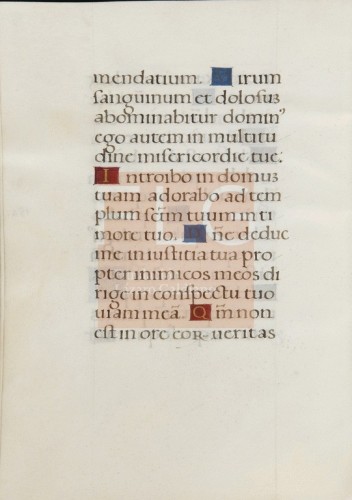 mendatium. Virum
sanguinum et dolosum
abominabitur domin⁹
ego autem in multitu
dine misericordie tue.
Introibo in domum
tuam adorabo ad tem
plum scm̄ tuum in ti
more tuo. Dn̄e deduc
me in iustitia tua pro
pter inimicos meos di
rige in conspectu tuo
uiam meā. Qm̄ non
est in ore eor̄ ueritas